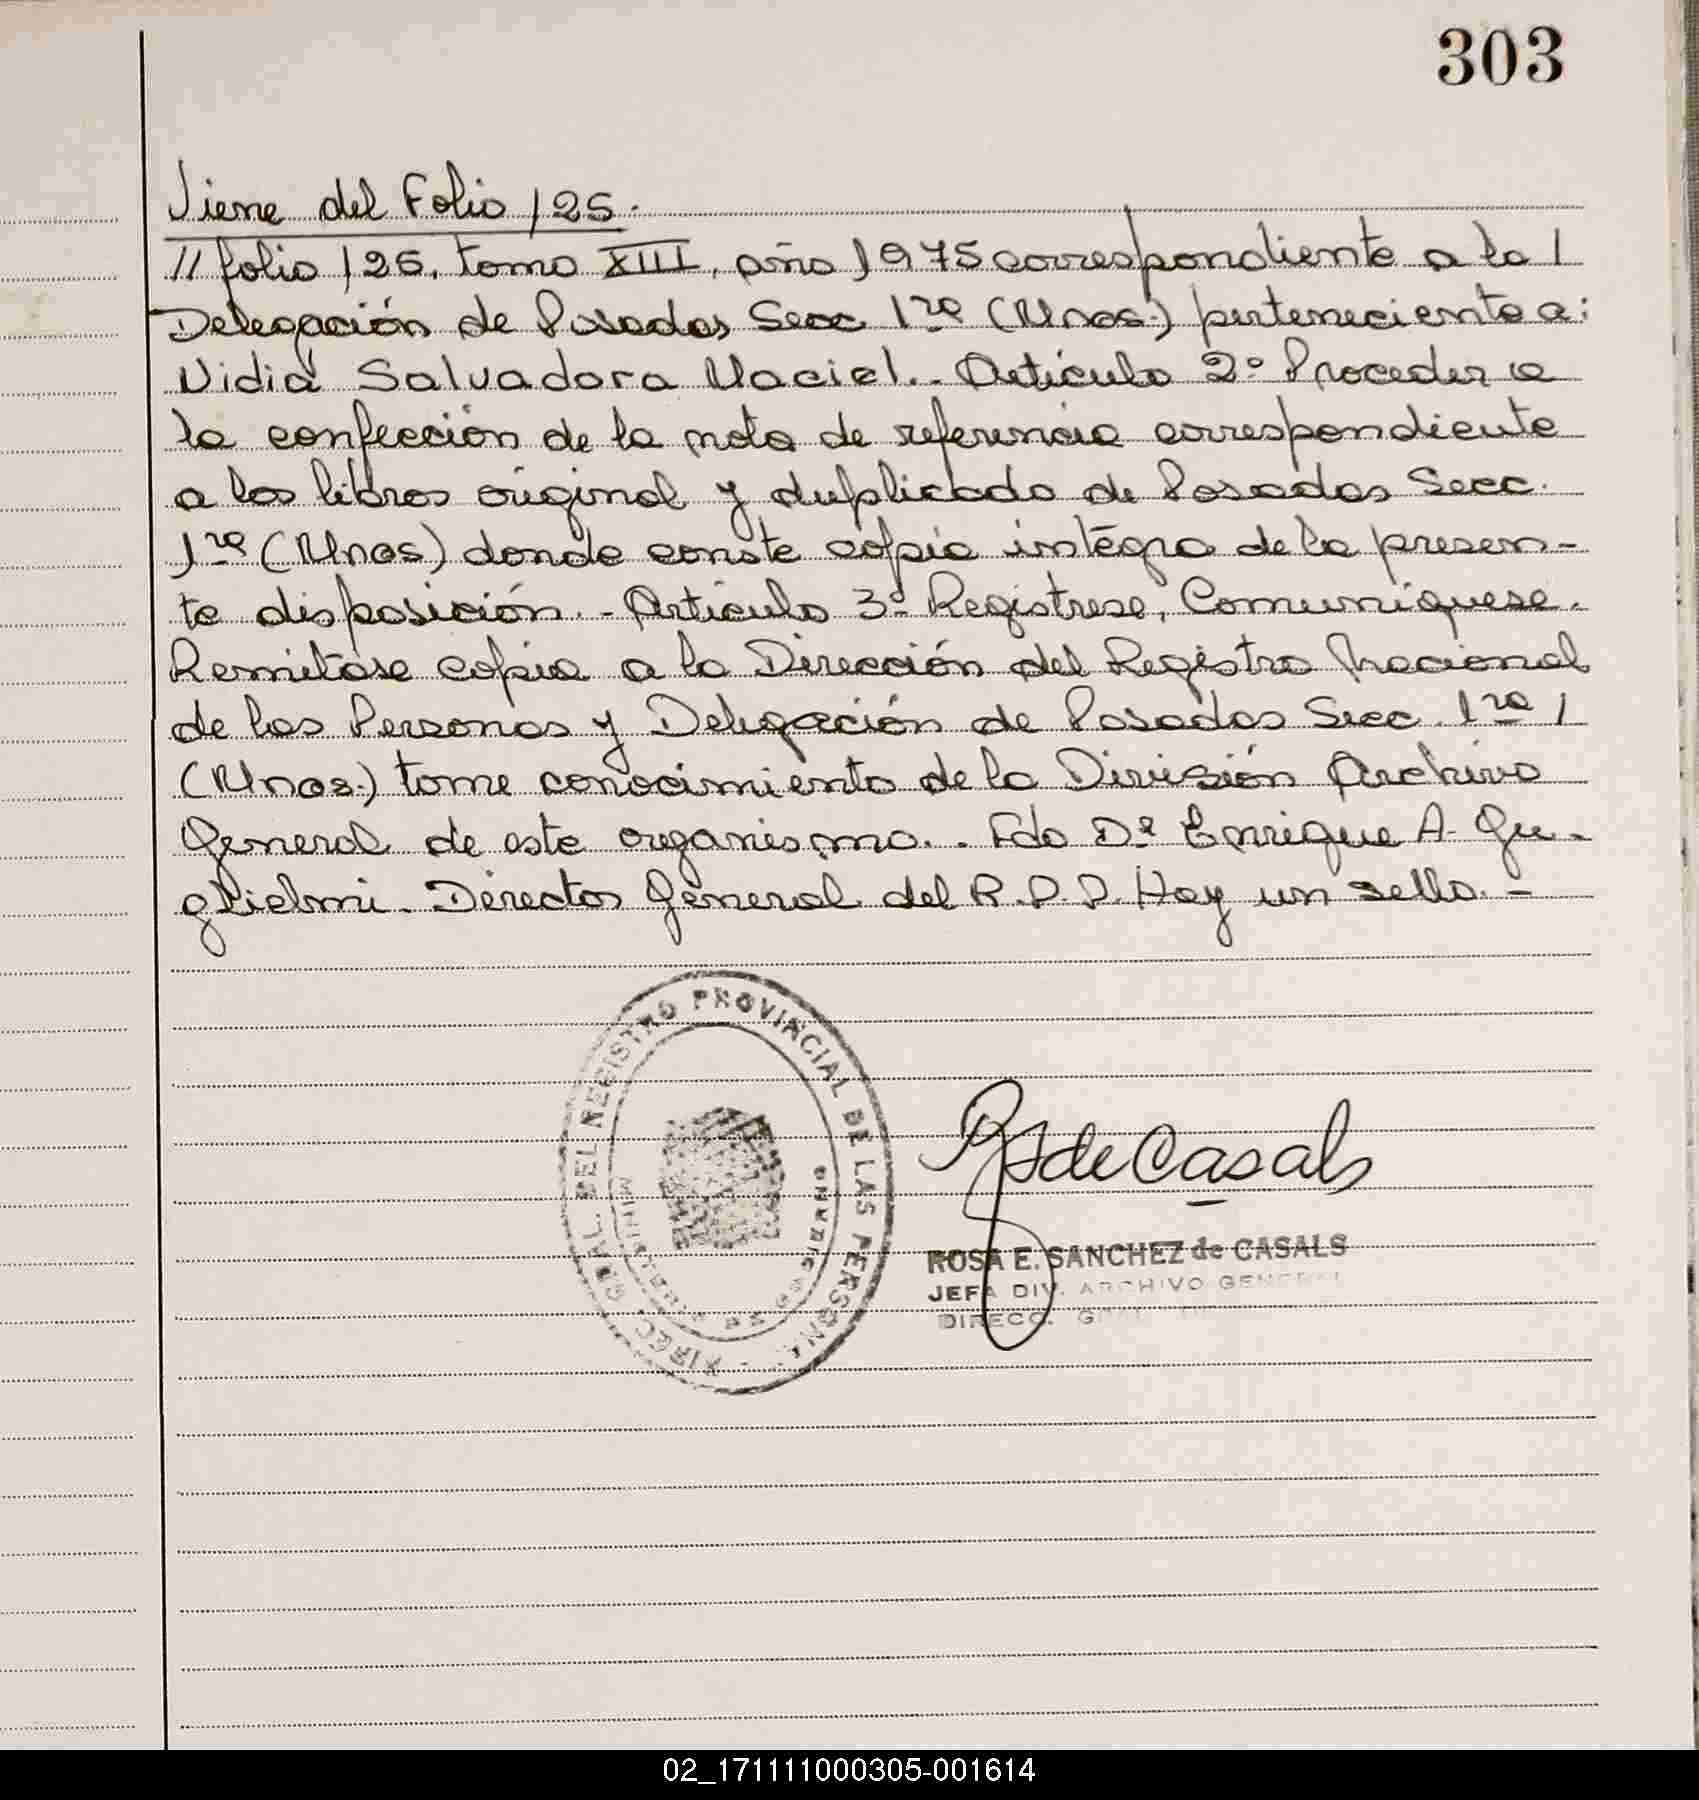 303
Viene del Folio 125.
// folio 125, tomo XIII, año 1975 correspondiente a la /
Delegación de Posadas Secc 1ra (Mnes.) perteneciente a:
Nidia Salvadora Maciel.- Artículo 2º Proceder a
la confección de la nota de referencia correspondiente
a los libros original y duplicado de Posadas Secc.
1ra (Mnes) donde conste copia integra de la presen-
te disposición.- Artículo 3º Registrese, Comuniquese.
Remitase copia a la Dirección del Registro Nacional
de las Personas y Delegación de Posadas Secc. 1ra /
(Mnes.) tome conocimiento de la División Archivo
General de este organismo.. Fdo Dr Enrique A. Gu-
glielmi. Director General del R.P.P. Hay un sello.-
DIREC. GRAL. DEL REGISTRO PROVINCIAL DE LAS PERSONAS
de Casals
ROSA E. SANCHEZ de CASALS
JEFA DIV. ARCHIVO GENERAL
DIRECC. GRAL.
02_171111000305-001614